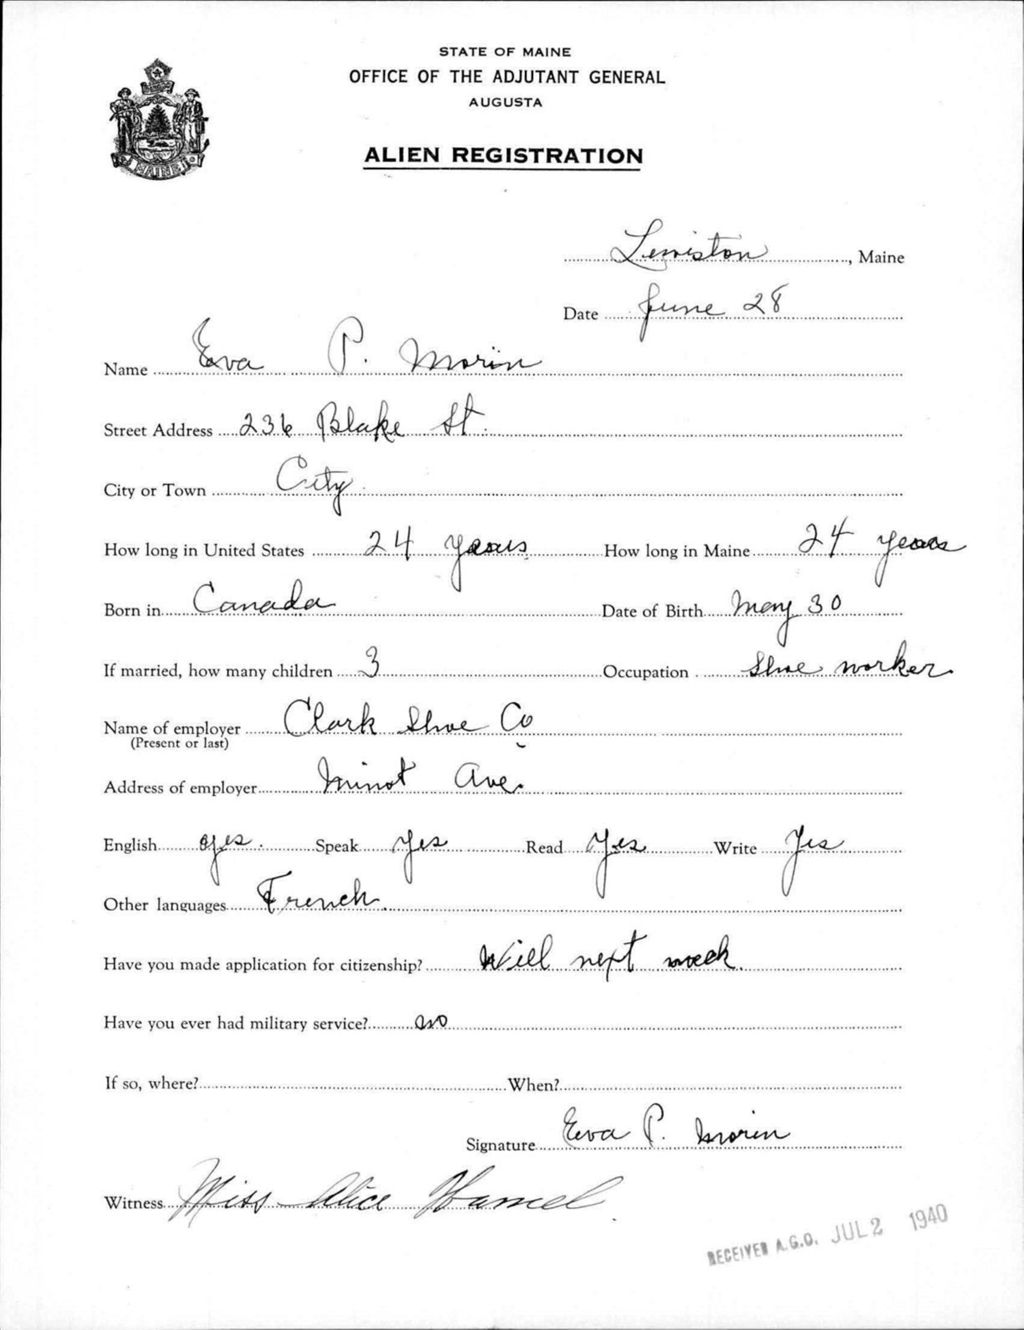 STATE OF MAINE
OFFICE OF THE ADJUTANT GENERAL
AUGUSTA
ALIEN REGISTRATION
MAINE
Lewiston, Maine
Date June 28
Name Eva P. Morin
Street Address 236 Blake St.
City or Town City
How long in United States 24 years How long in Maine 24 years
Born in Canada Date of Birth May 30
If married, how many children 3 Occupation Shoe worker
Name of employer Clark Shoe Co
(Present or last)
Address of employer Minot Ave.
English yes. Speak Yes Read Yes Write Yes
Other languages French
Have you made application for citizenship? Will next week
Have you ever had military service? no
If so, where? When?
Signature Eva P. Morin
Witness Miss Alice Hamel
RECEIVED A.G.O. JUL 2 1940